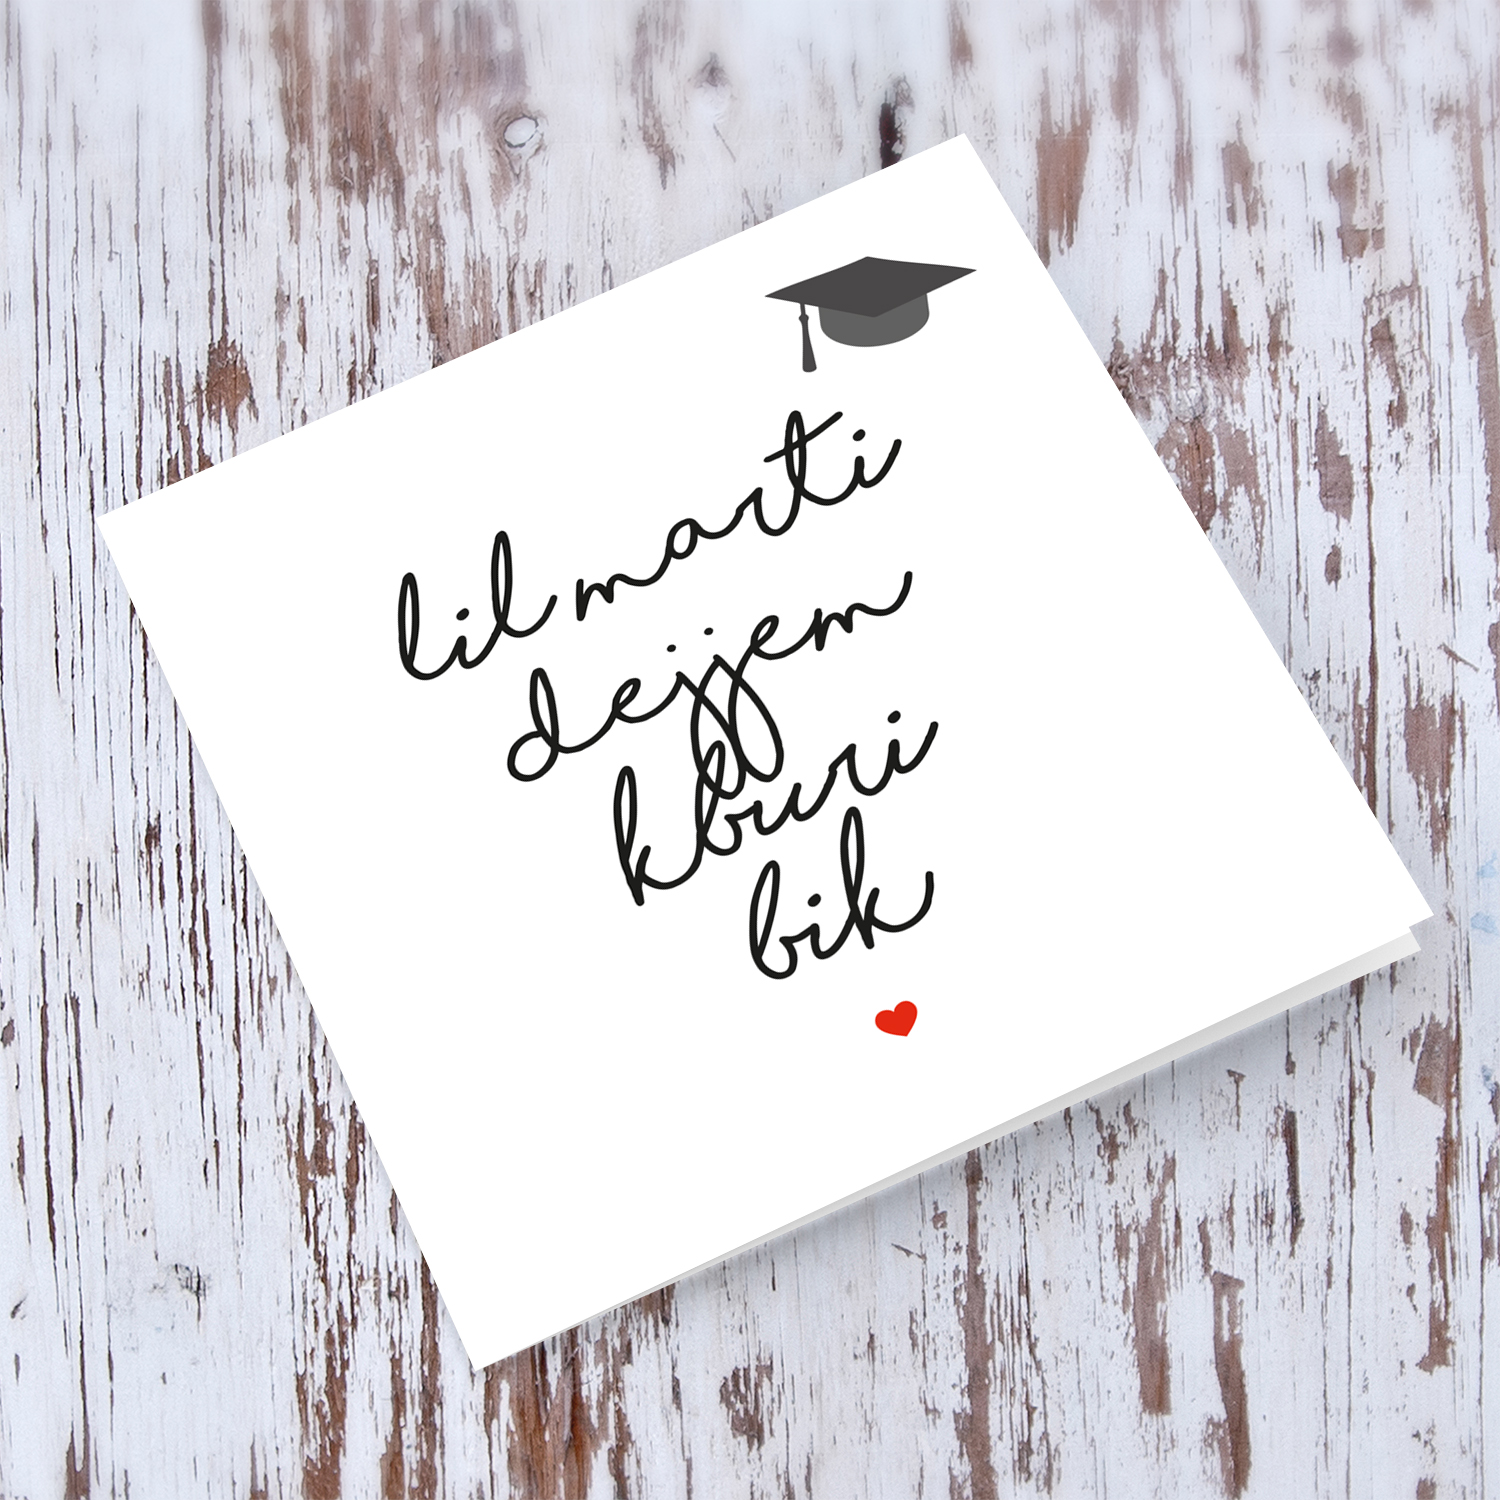 lil marti
dejjem
kburi
bik